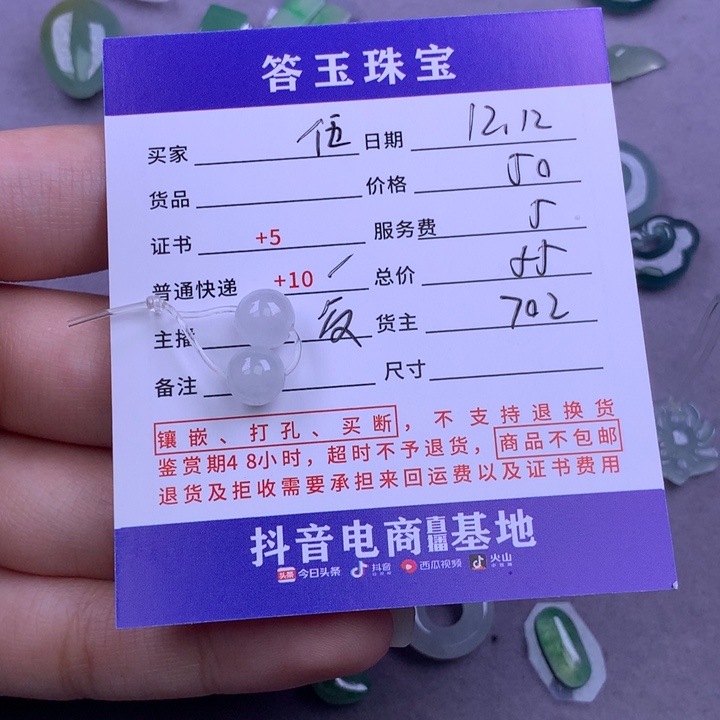 答玉珠宝
买家 伍 日期 12.12
货品 价格 50
证书 +5 服务费 5
普通快递 +10 总价 55
主播 货主 702
备注 尺寸
镶嵌、打孔、买断,不支持退换货
鉴赏期48小时,超时不予退货,商品不包邮
退货及拒收需要承担来回运费以及证书费用
抖音电商直播基地
头条 今日头条 抖音 西瓜视频 火山